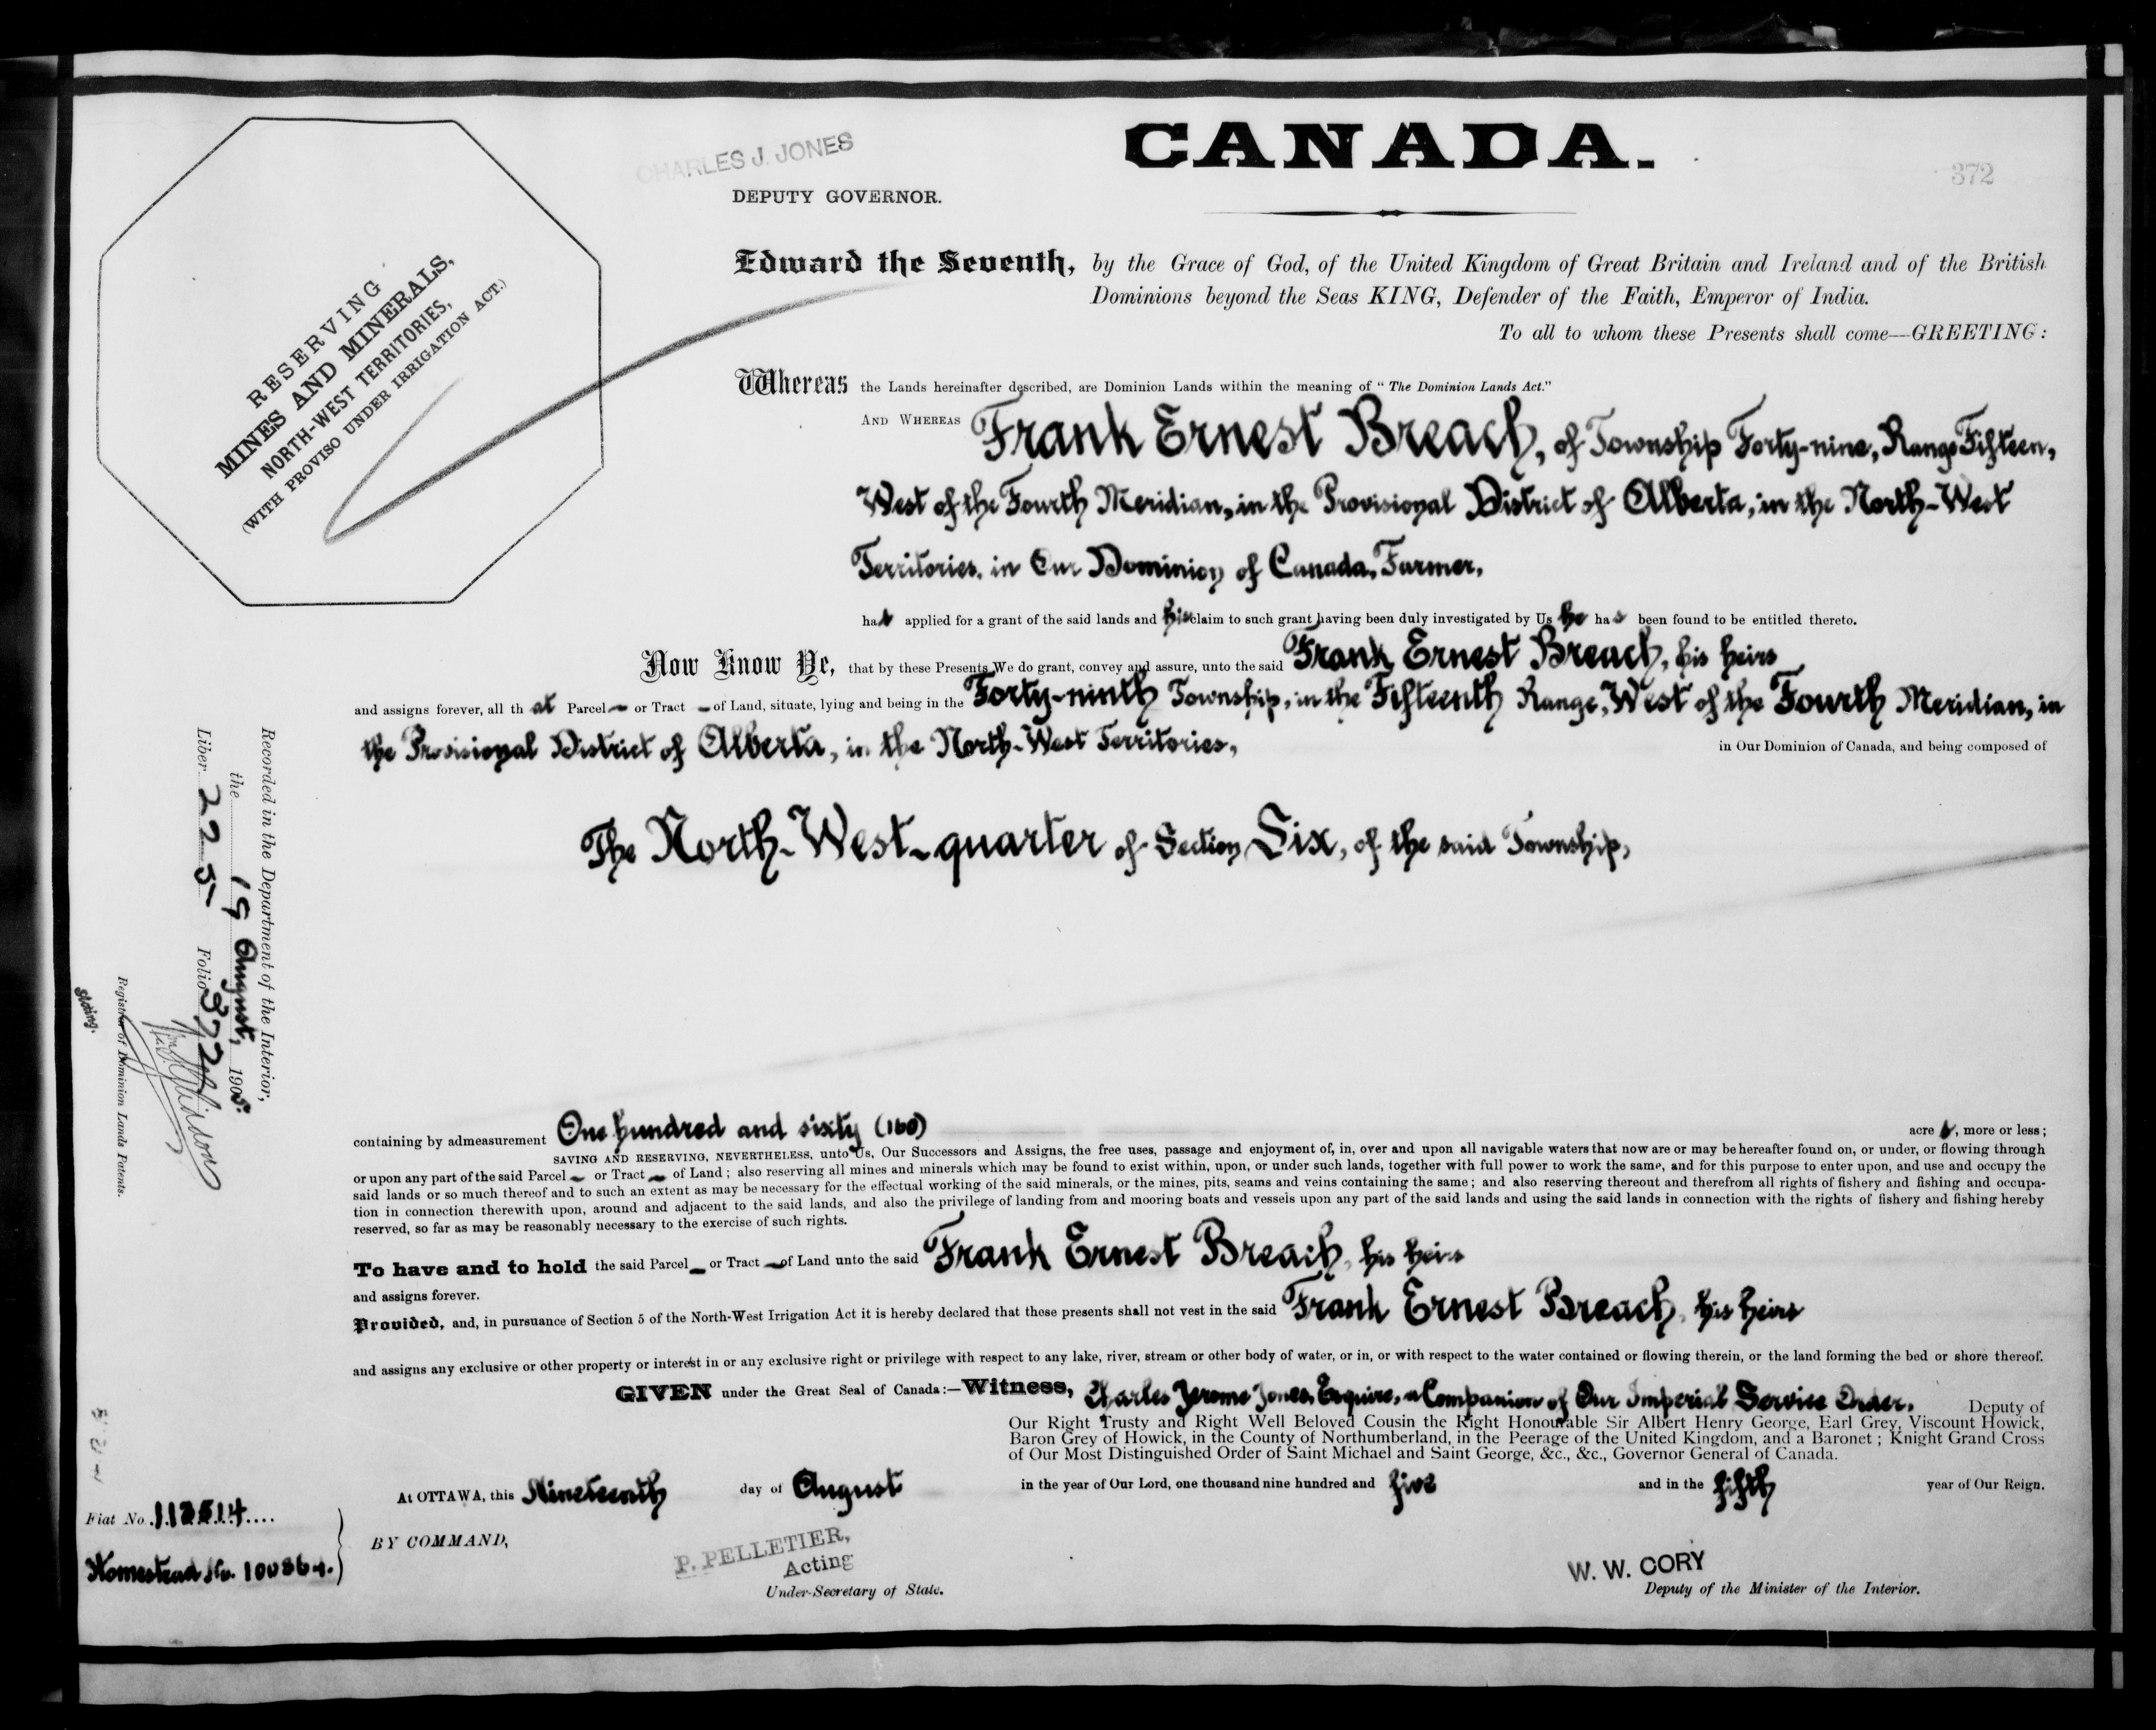 CANADA.
372
CHARLES J. JONES
DEPUTY GOVERNOR.
RESERVING
MINES AND MINERALS,
NORTH-WEST TERRITORIES,
(WITH PROVISO UNDER IRRIGATION ACT.)
Edward the Seventh, by the Grace of God, of the United Kingdom of Great Britain and Ireland and of the British
Dominions beyond the Seas KING, Defender of the Faith, Emperor of India.
To all to whom these Presents shall come—GREETING:
Whereas the Lands hereinafter described, are Dominion Lands within the meaning of "The Dominion Lands Act."
AND WHEREAS Frank Ernest Breach, of Township Forty-nine, Range Fifteen,
West of the Fourth Meridian, in the Provisional District of Alberta, in the North-West
Territories, in Our Dominion of Canada, Farmer,
has applied for a grant of the said lands and his claim to such grant having been duly investigated by Us he has been found to be entitled thereto.
Now Know Ye, that by these Presents We do grant, convey and assure, unto the said Frank Ernest Breach, his heirs
and assigns forever, all that Parcel or Tract of Land, situate, lying and being in the Forty-ninth Township, in the Fifteenth Range, West of the Fourth Meridian, in
the Provisional District of Alberta, in the North-West Territories, in Our Dominion of Canada, and being composed of
The North-West-quarter of Section Six, of the said Township,
containing by admeasurement One hundred and sixty (160) acres, more or less;
SAVING AND RESERVING, NEVERTHELESS, unto Us, Our Successors and Assigns, the free uses, passage and enjoyment of, in, over and upon all navigable waters that now are or may be hereafter found on, or under, or flowing through
or upon any part of the said Parcel or Tract of Land; also reserving all mines and minerals which may be found to exist within, upon, or under such lands, together with full power to work the same, and for this purpose to enter upon, and use and occupy the
said lands or so much thereof and to such an extent as may be necessary for the effectual working of the said minerals, or the mines, pits, seams and veins containing the same; and also reserving thereout and therefrom all rights of fishery and fishing and occupa-
tion in connection therewith upon, around and adjacent to the said lands, and also the privilege of landing from and mooring boats and vessels upon any part of the said lands and using the said lands in connection with the rights of fishery and fishing hereby
reserved, so far as may be reasonably necessary to the exercise of such rights.
To have and to hold the said Parcel or Tract of Land unto the said Frank Ernest Breach, his heirs
and assigns forever.
Provided, and, in pursuance of Section 5 of the North-West Irrigation Act it is hereby declared that those presents shall not vest in the said Frank Ernest Breach, his heirs
and assigns any exclusive or other property or interest in or any exclusive right or privilege with respect to any lake, river, stream or other body of water, or in, or with respect to the water contained or flowing therein, or the land forming the bed or shore thereof.
GIVEN under the Great Seal of Canada:—Witness, Charles Jerome Jones, Esquire, a Companion of Our Imperial Service Order, Deputy of
Our Right Trusty and Right Well Beloved Cousin the Right Honourable Sir Albert Henry George, Earl Grey, Viscount Howick,
Baron Grey of Howick, in the County of Northumberland, in the Peerage of the United Kingdom, and a Baronet; Knight Grand Cross
of Our Most Distinguished Order of Saint Michael and Saint George, &c., &c., Governor General of Canada.
At OTTAWA, this Nineteenth day of August in the year of Our Lord, one thousand nine hundred and five and in the fifth year of Our Reign.
BY COMMAND,
P. PELLETIER,
Acting
Under-Secretary of State.
W. W. CORY
Deputy of the Minister of the Interior.
Recorded in the Department of the Interior,
the 19 August, 1905.
Liber 225 Folio 372
Registrar of Dominion Lands Patents.
Fiat No.
Homestead No.